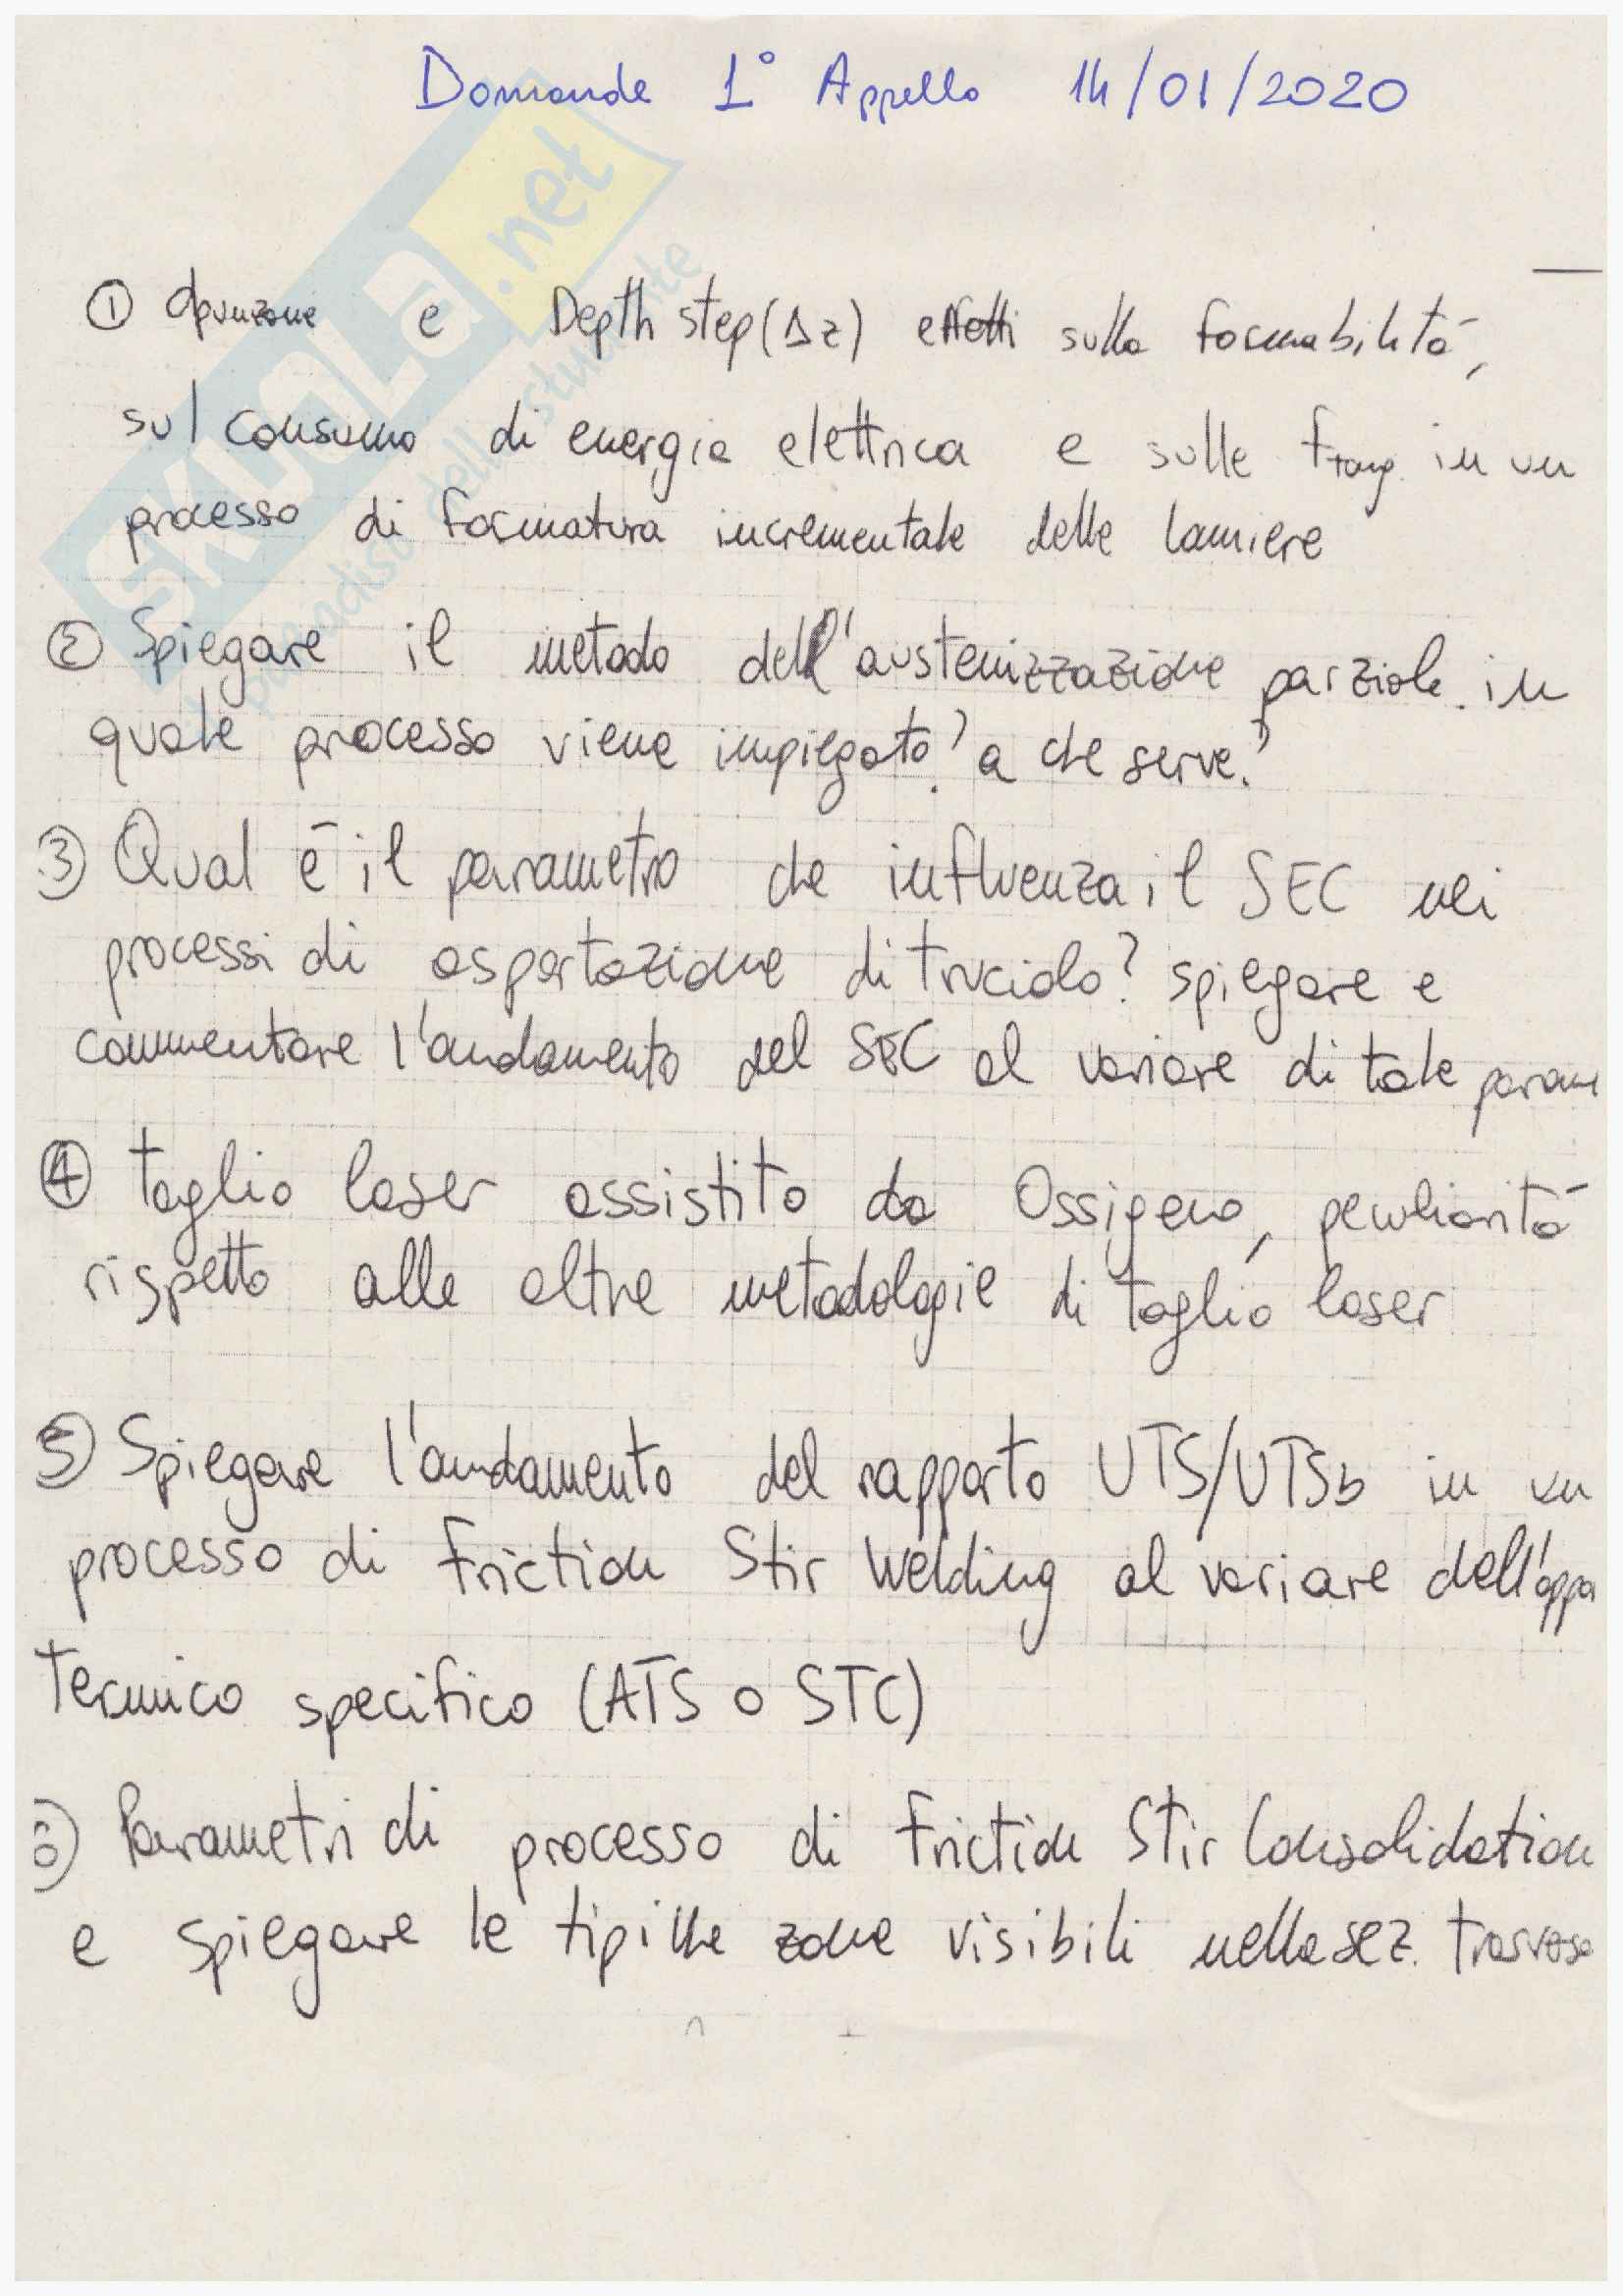 Domande 1° Appello 14/01/2020
① dpunzone e Depth step (Δz) effetti sulla formabilità,
sul consumo di energia elettrica e sulle Ftang. in un
processo di formatura incrementale delle lamiere
② Spiegare il metodo dell'austenizzazione parziale. in
quale processo viene impiegato? a che serve?
③ Qual è il parametro che influenza il SEC nei
processi di asportazione di truciolo? spiegare e
commentare l'andamento del SEC al variare di tale param
④ Taglio laser assistito da Ossigeno, peculiarità
rispetto alle altre metodologie di taglio laser
⑤ Spiegare l'andamento del rapporto UTS/UTSb in un
processo di Friction Stir Welding al variare dell'appo
Termico specifico (ATS o STC)
⑥ Parametri di processo di Friction Stir Consolidation
e spiegare le tipiche zone visibili nella sez. trasversa
SKUOLA.net
paradiso dello studente